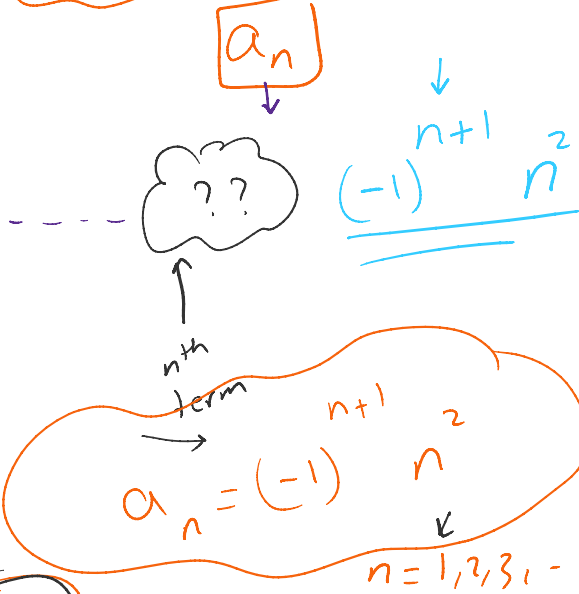 aₙ
? ?
(-1)ⁿ⁺¹ n²
nᵗʰ
term
aₙ = (-1)ⁿ⁺¹ n²
n = 1, 2, 3, -